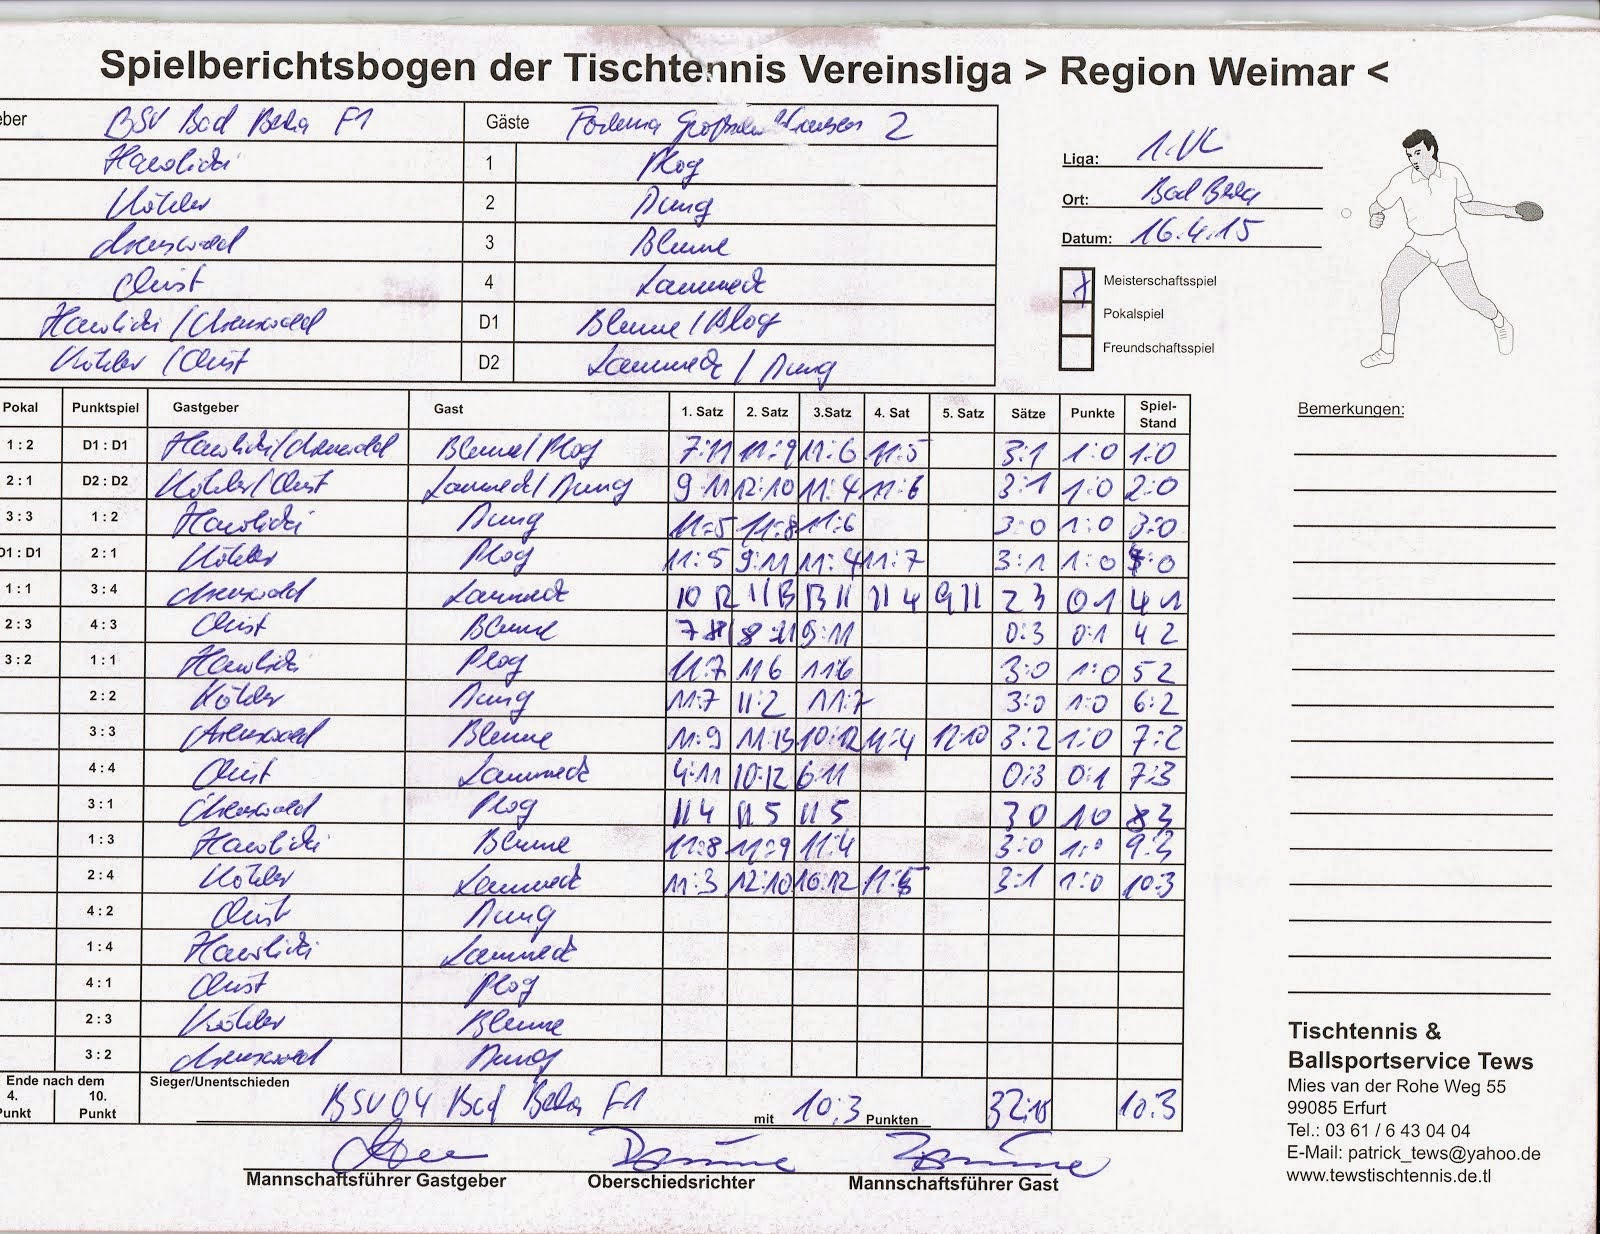 Spielberichtsbogen der Tischtennis Vereinsliga > Region Weimar <
eber BSV Bad Berka F1 Gäste Fortuna 2
Hawlicki 1 Plog
Köhler 2 Dung
2 Blume
Christ 4 Lammeck
Hawlicki / D1 Blume / Plog
Köhler / Christ D2 Lammeck / Dung
Liga: 1.VL
Ort: Bad Berka
Datum: 16.4.15
Meisterschaftsspiel
Pokalspiel
Freundschaftsspiel
Pokal Punktspiel Gastgeber Gast 1. Satz 2. Satz 3.Satz 4. Sat 5. Satz Sätze Punkte Spiel-Stand
1 : 2 D1 : D1 Hawlicki/ Blume/Plog 7:11 11:9 11:6 11:5 3:1 1:0 1:0
2 : 1 D2 : D2 Köhler/Christ Lammeck/Dung 9:11 12:10 11:4 11:6 3:1 1:0 2:0
3 : 3 1 : 2 Hawlicki Dung 11:5 11:8 11:6 3:0 1:0 3:0
D1 : D1 2 : 1 Köhler Plog 11:5 9:11 11:4 11:7 3:1 1:0 4:0
1 : 1 3 : 4 Lammeck 10 12 11 13 13 11 11 4 9 11 2 3 0 1 4 1
2 : 3 4 : 3 Christ Blume 8:11 9:11 0:3 0:1 4 2
3 : 2 1 : 1 Hawlicki Plog 11:7 11 6 11:6 3:0 1:0 5 2
2 : 2 Köhler Dung 11:7 11:2 11:7 3:0 1:0 6:2
3 : 3 Blume 11:9 11:13 10:12 11:4 12:10 3:2 1:0 7:2
4 : 4 Christ Lammeck 4:11 10:12 6:11 0:3 0:1 7:3
3 : 1 Plog 11 4 11 5 11 5 3 0 1 0 8 3
1 : 3 Hawlicki Blume 11:8 11:9 11:4 3:0 1:0 9:3
2 : 4 Köhler Lammeck 11:3 12:10 10:12 11:5 3:1 1:0 10:3
4 : 2 Christ Dung
1 : 4 Hawlicki Lammeck
4 : 1 Christ Plog
2 : 3 Köhler Blume
3 : 2 Dung
Ende nach dem
4. Punkt 10. Punkt
Sieger/Unentschieden
BSV 04 Bad Berka F1 mit 10:3 Punkten 32:10 10:3
Mannschaftsführer Gastgeber Oberschiedsrichter Mannschaftsführer Gast
Bemerkungen:
Tischtennis &
Ballsportservice Tews
Mies van der Rohe Weg 55
99085 Erfurt
Tel.: 03 61 / 6 43 04 04
E-Mail: patrick_tews@yahoo.de
www.tewstischtennis.de.tl